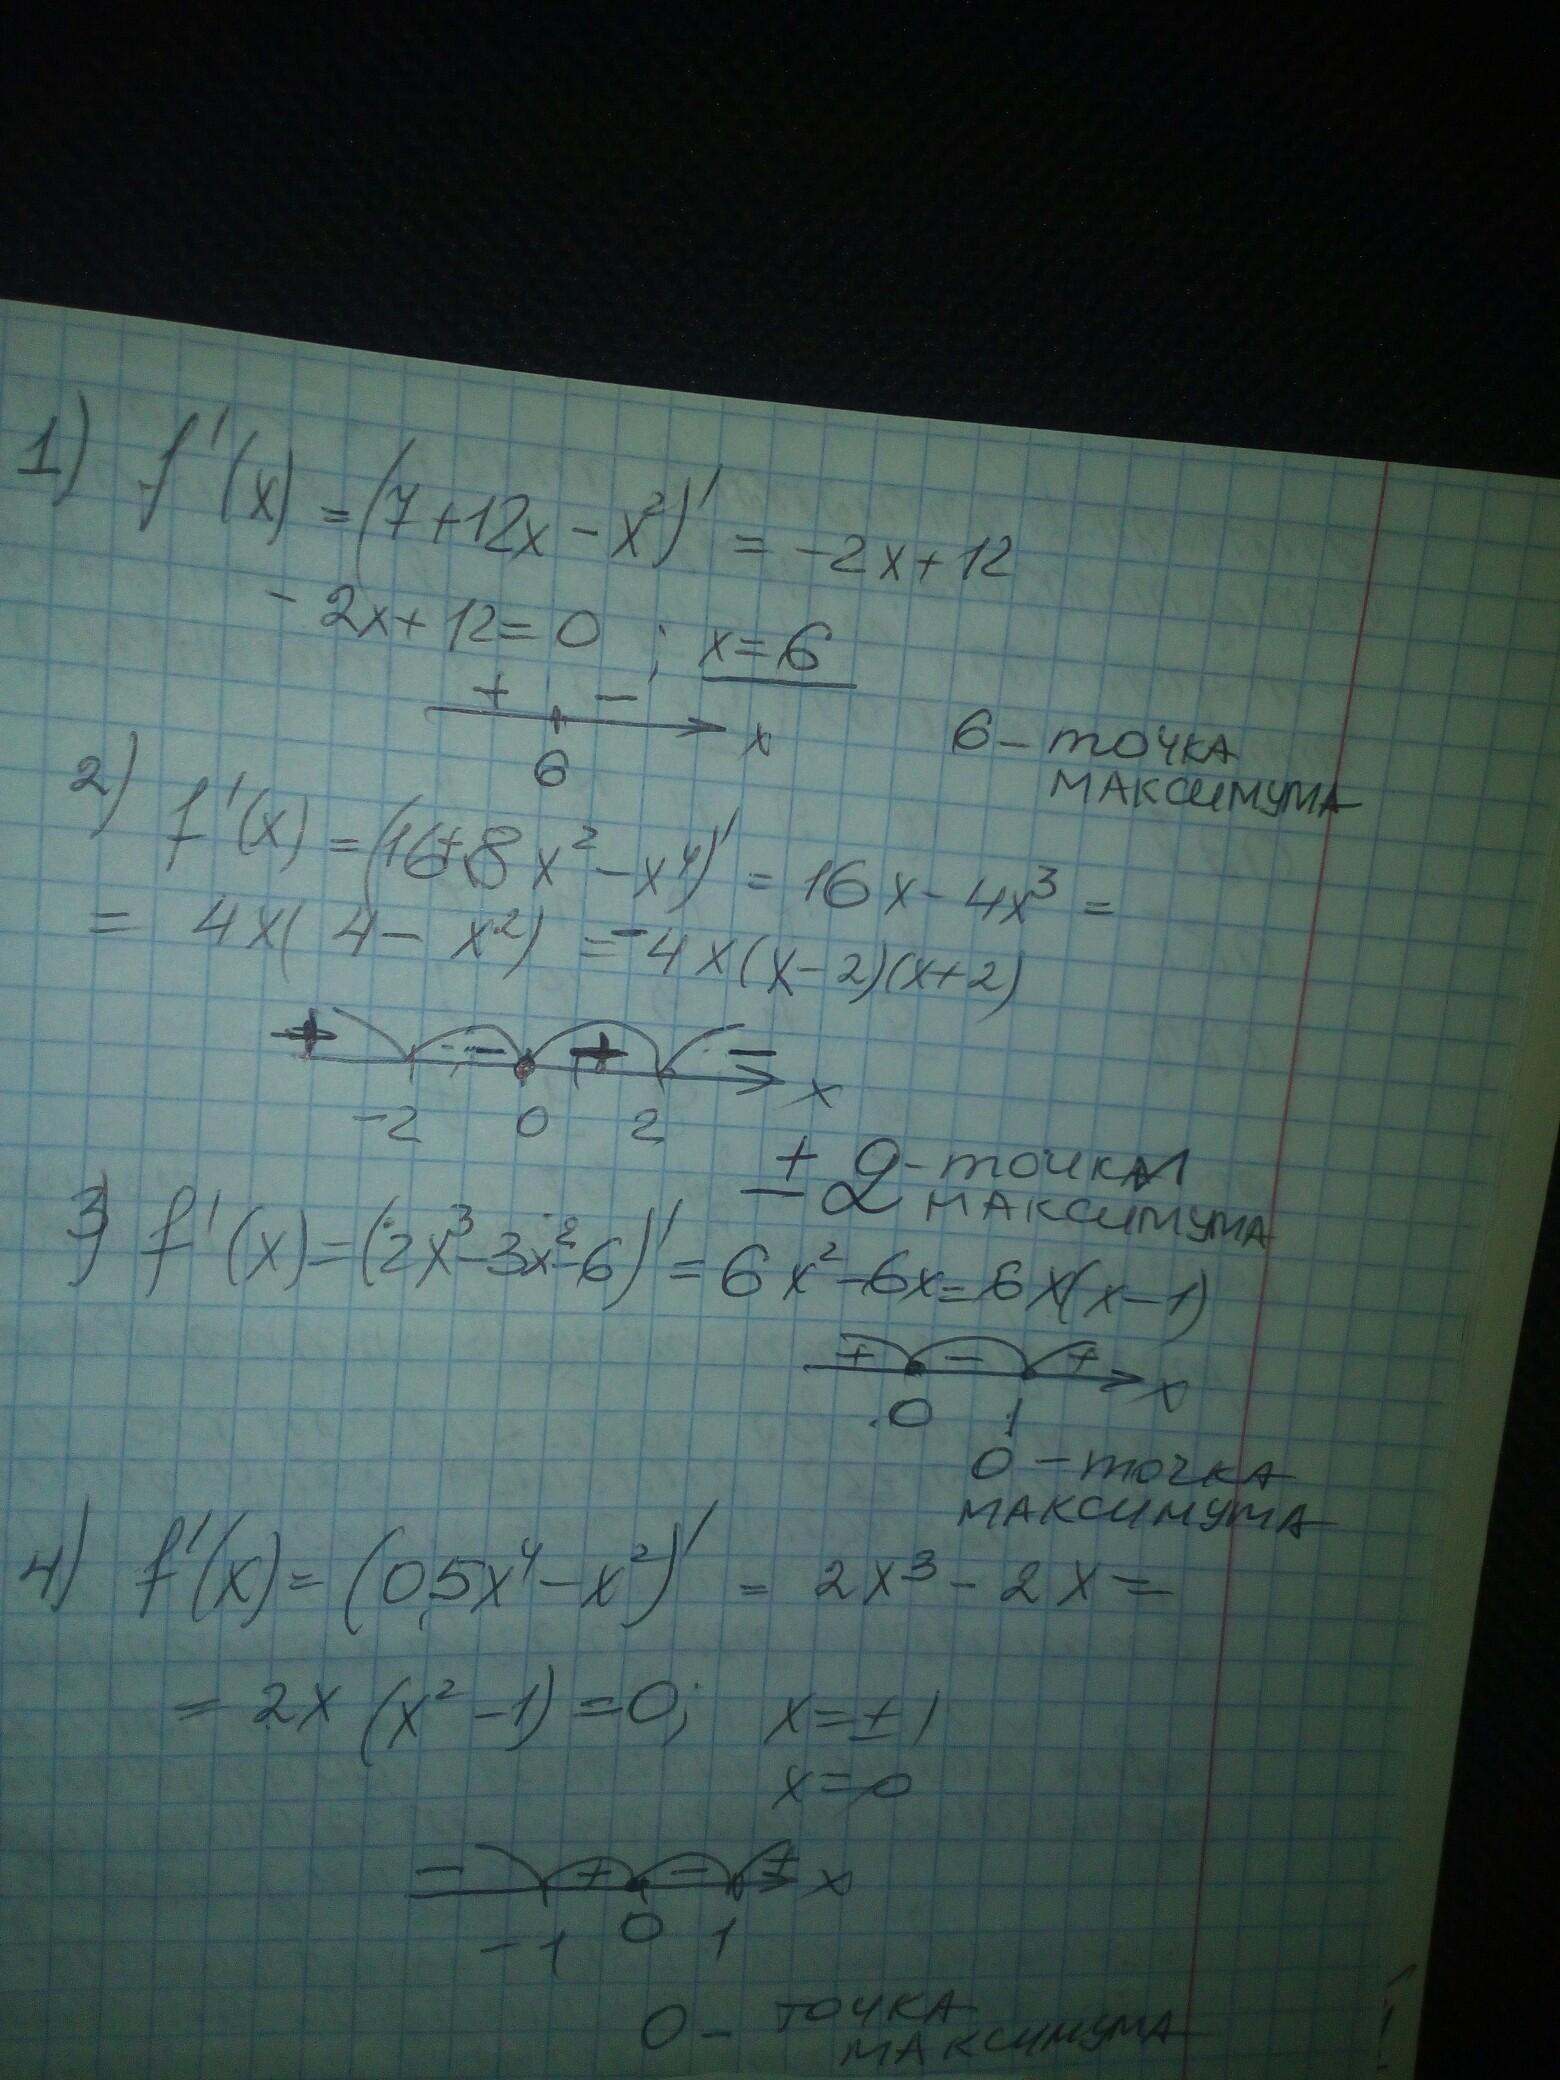 1) f'(x) = (7+12x-x²)' = -2x+12
-2x+12=0 ; x=6
+ -
x
6
6 - точка
максимума
2) f'(x) = (16+8x²-x⁴)' = 16x-4x³ =
= 4x(4-x²) = -4x(x-2)(x+2)
+ - + -
x
-2 0 2
± 2 - точка
максимума
3) f'(x)=(2x³-3x²-6)' = 6x²-6x=6x(x-1)
+ - +
x
0 1
0 - точка
максимума
4) f'(x)= (0,5x⁴-x²)' = 2x³-2x =
= 2x (x²-1) =0; x=±1
x=0
- + - +
x
-1 0 1
0 - точка
максимума